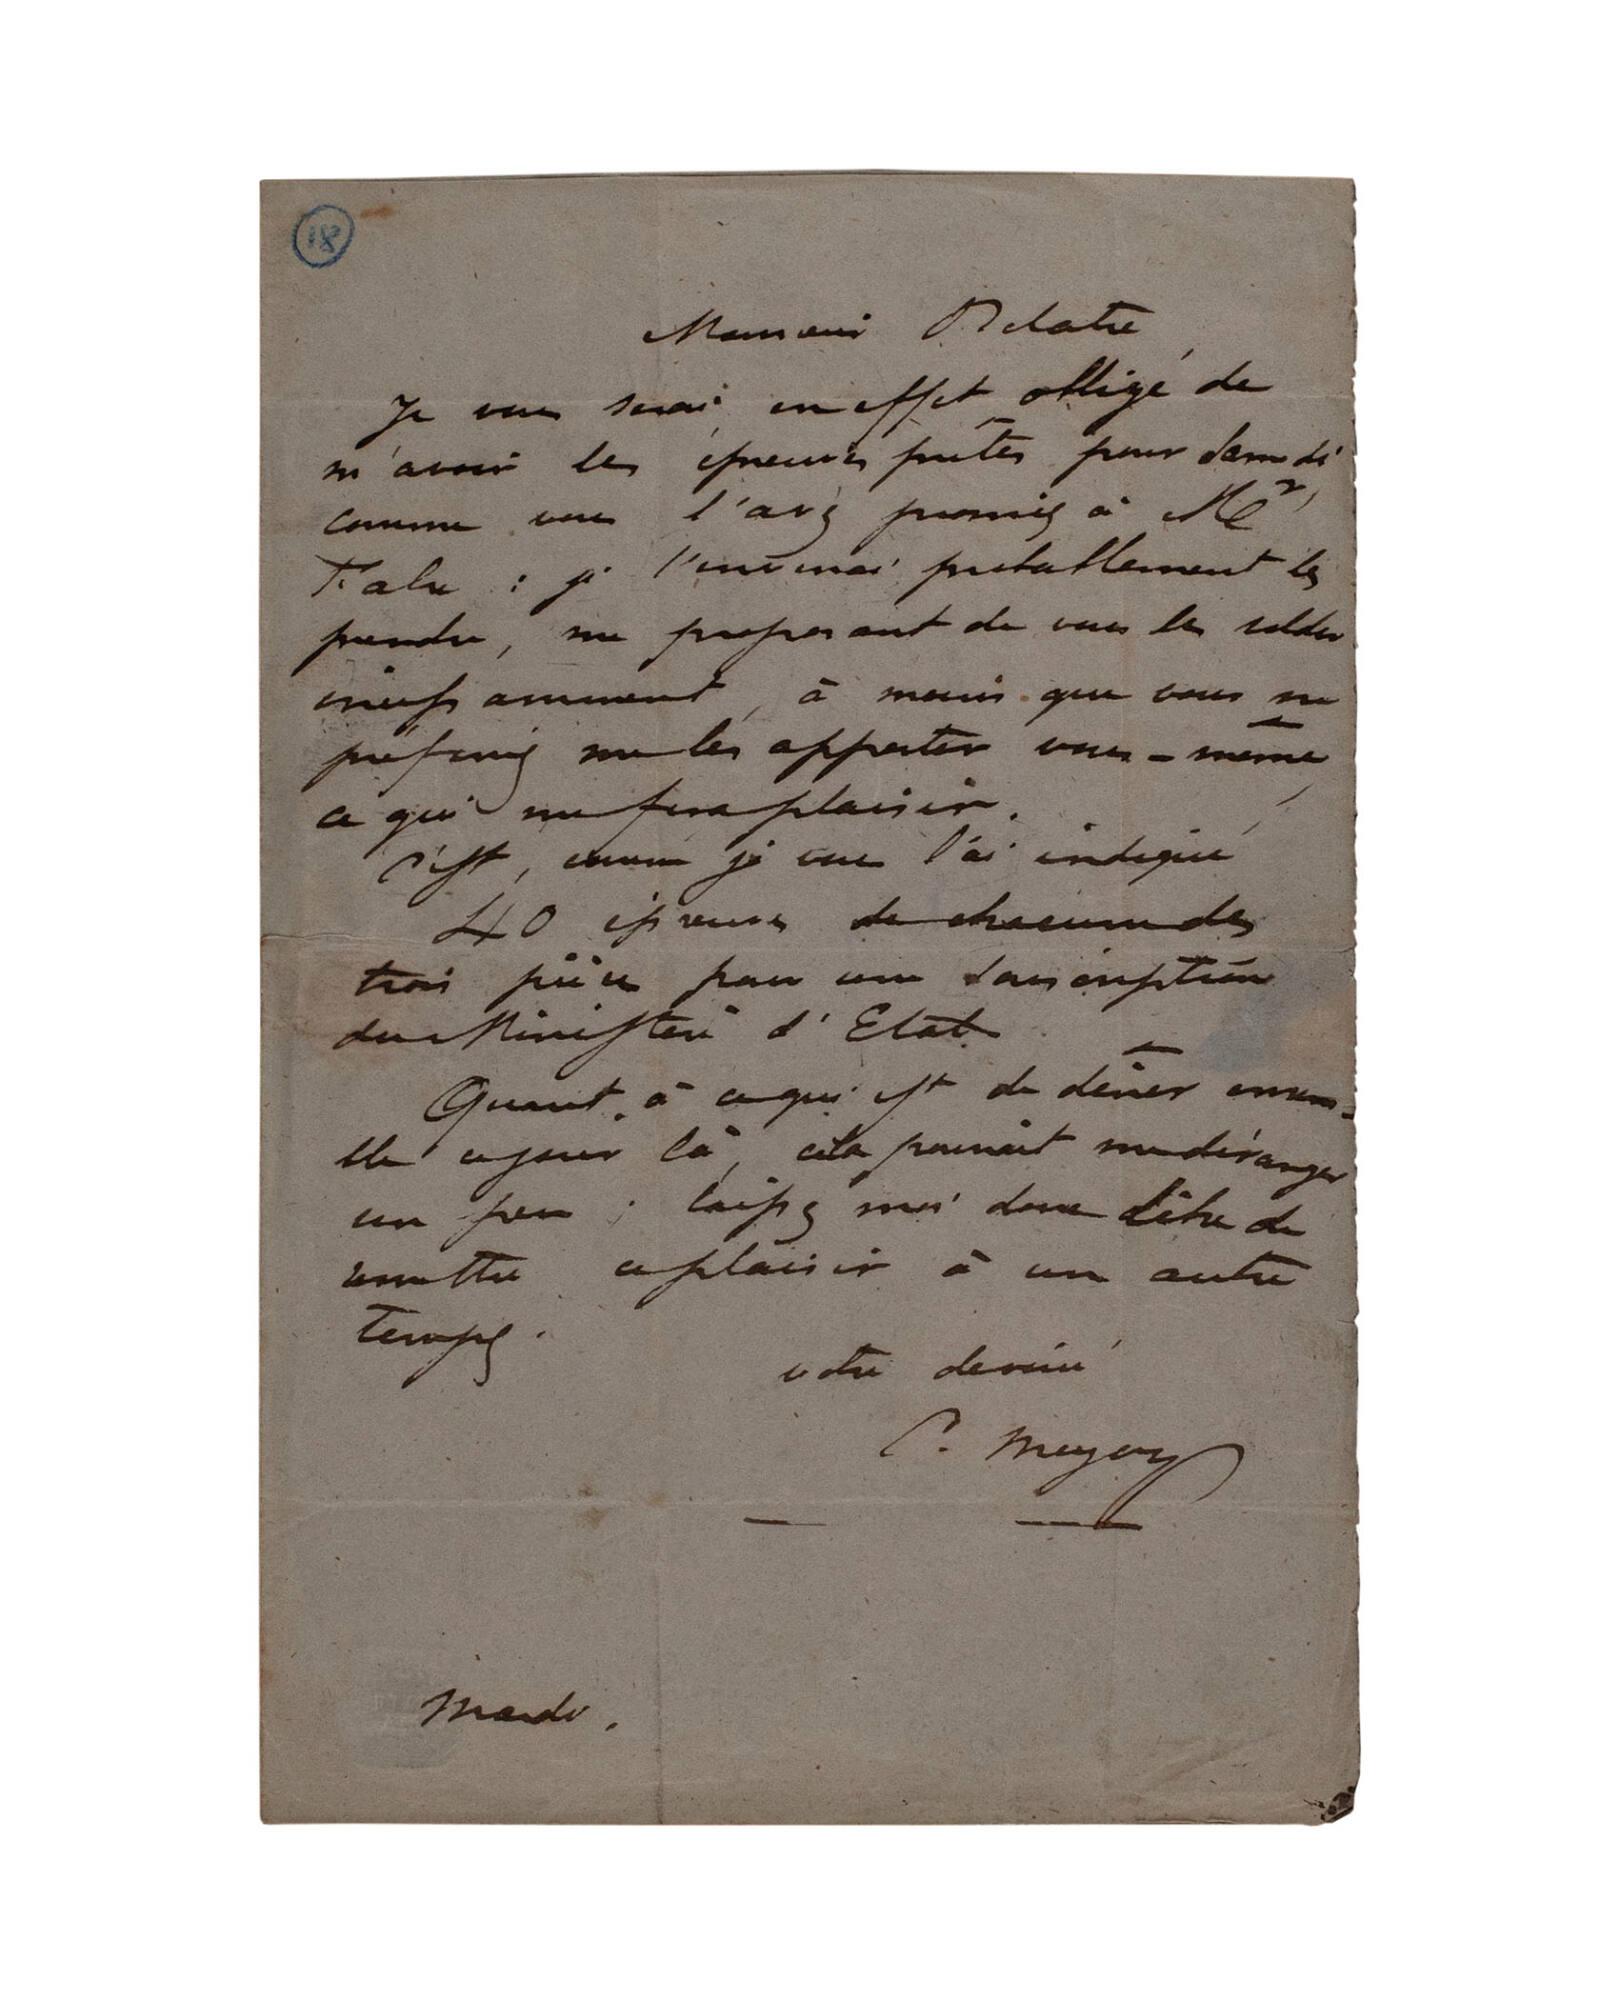 18
Monsieur Delatre
Je vous serai en effet obligé de
m'avoir les épreuves prêtes pour samedi
comme vous l'avez promis à Mr
: je l'enverrai probablement les
prendre, me proposant de vous les solder
incessamment, à moins que vous ne
préfériez me les apporter vous-même,
ce qui me fera plaisir.
C'est, comme je vous l'ai indiqué
40 épreuves de chacune des
trois pièces pour une souscription
du Ministère d'Etat.
Quant à ce qui est de dîner ensem-
ble ce jour là, cela pourrait me déranger
un peu ; laissez moi donc de
remettre ce plaisir à un autre
temps.
votre dévoué
C. Meryon
Mardi.